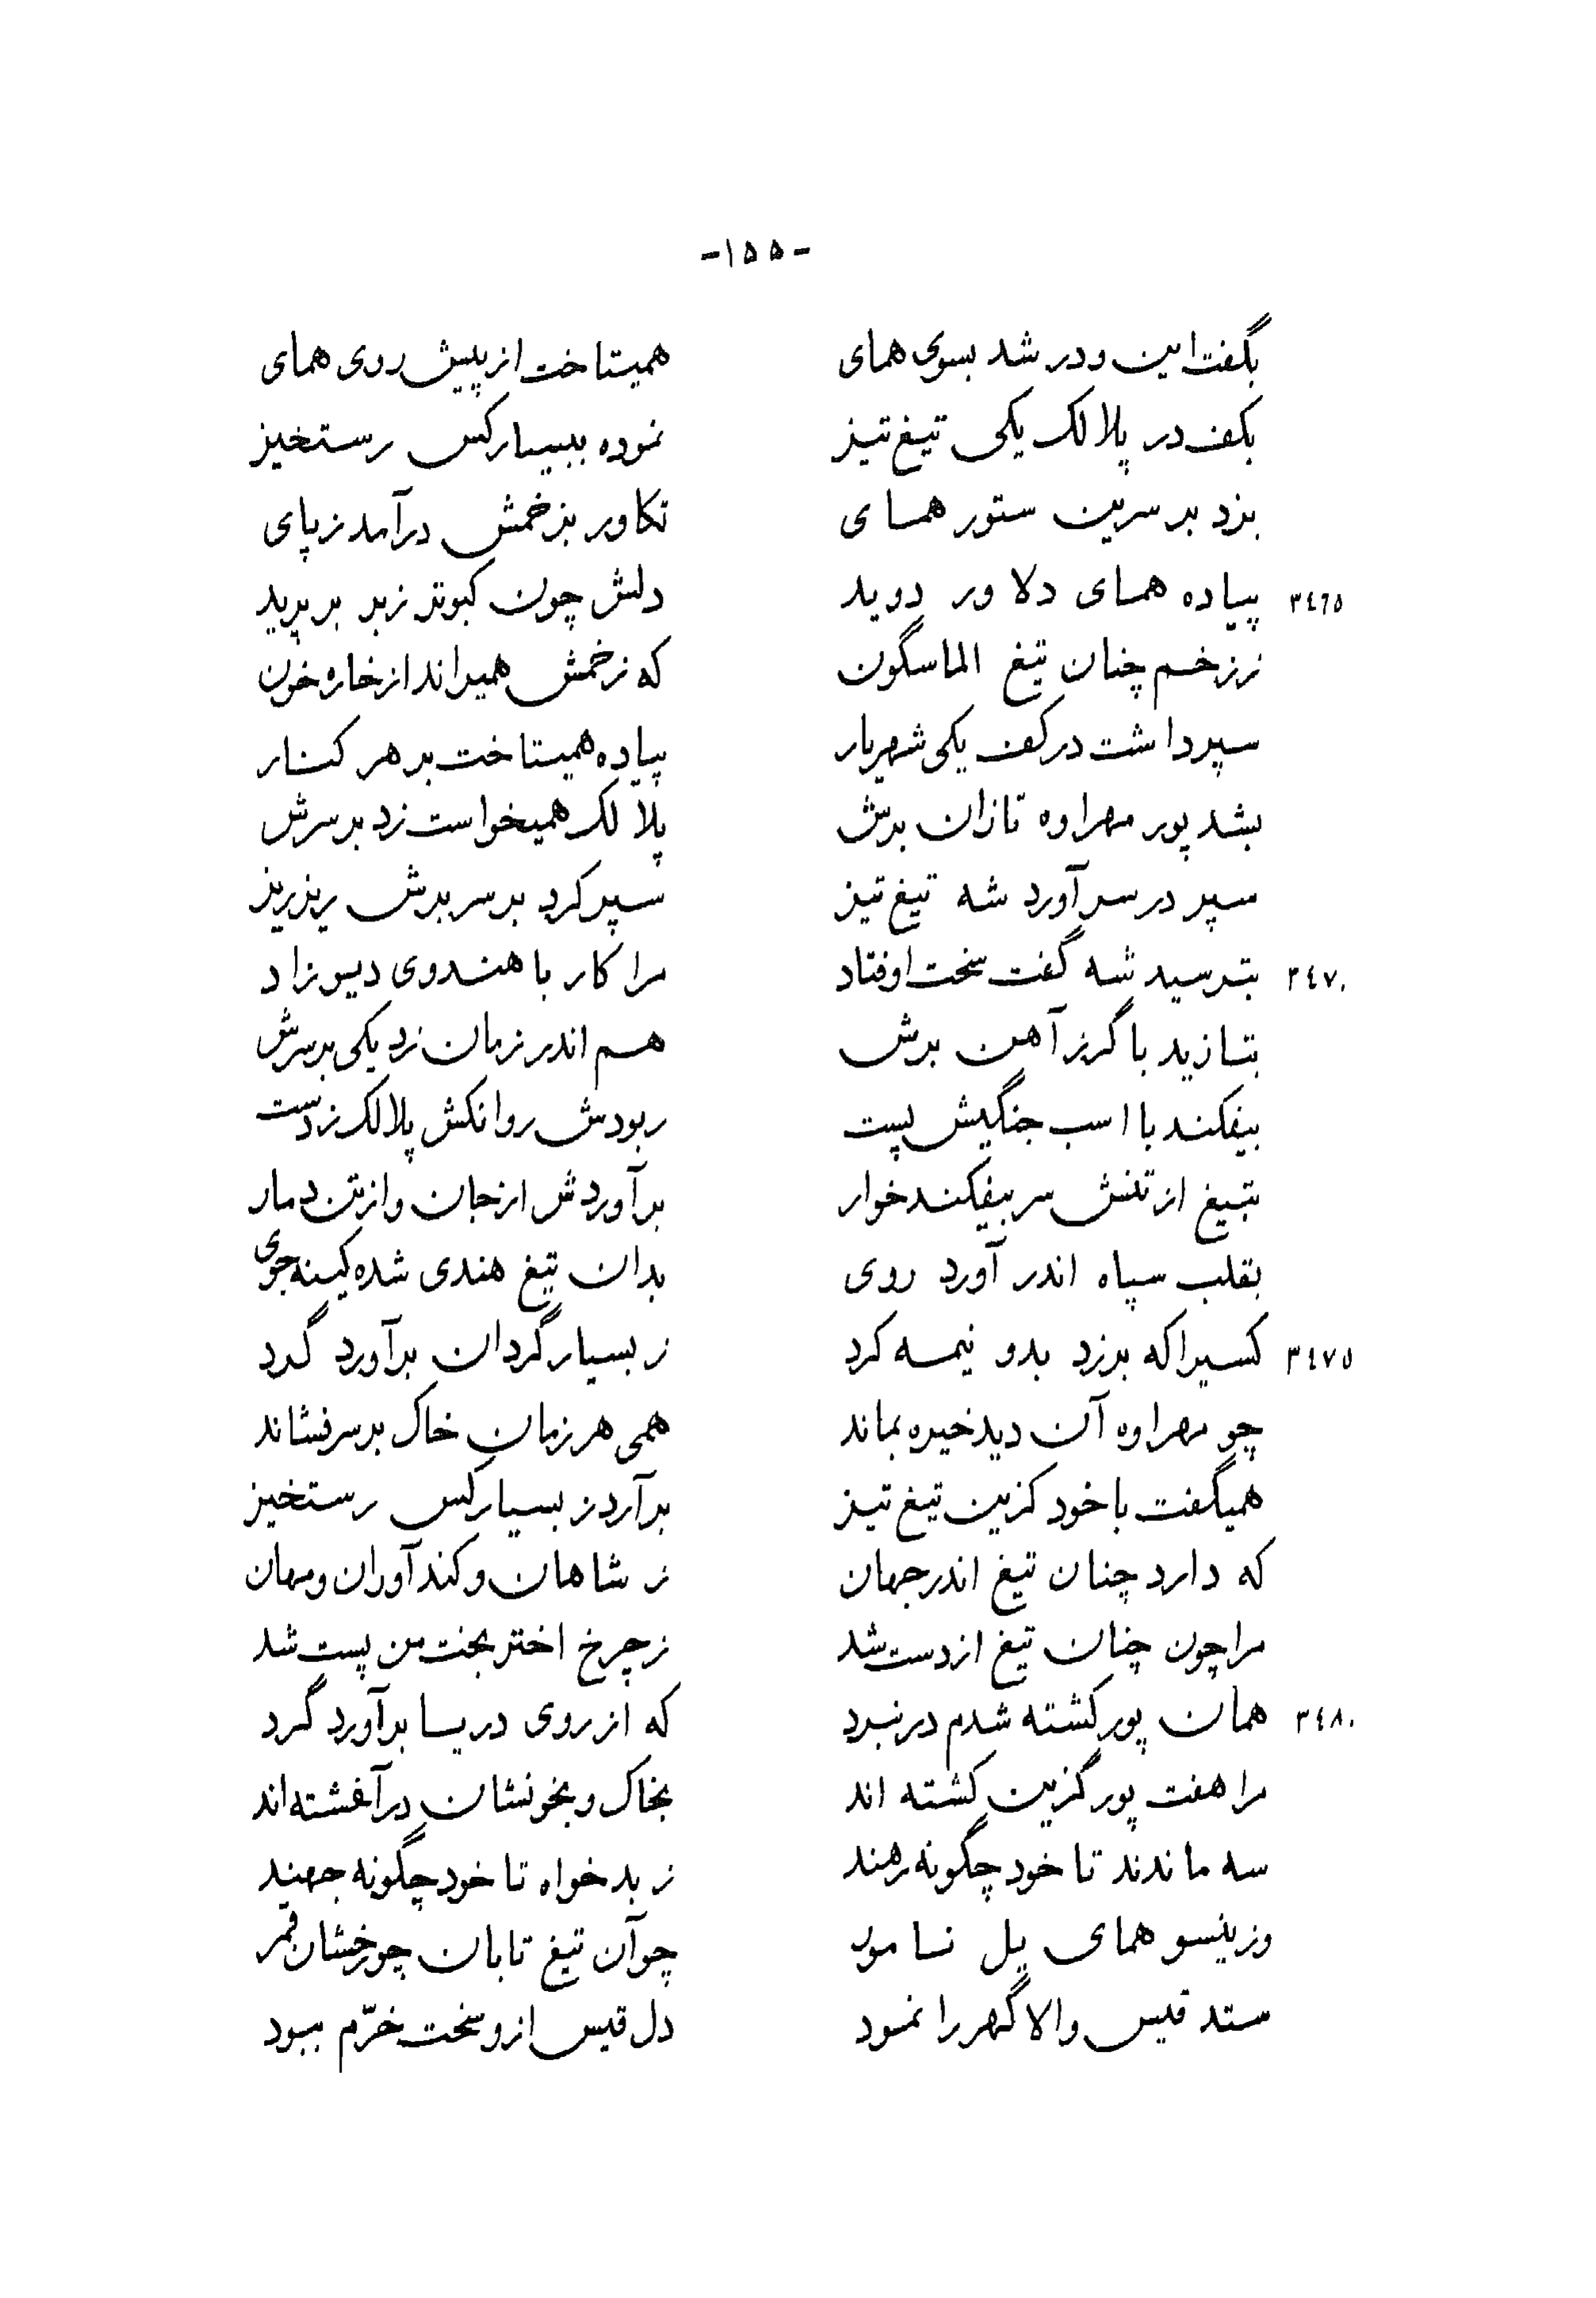 -۱۵۵-
بگفت این و در شد بسوی همای همیتاخت از پیش روی همای
بکف در پلالک یکی تیغ تیز نموده ببسیار کس رستخیز
بزد بر سرین ستور همای تکاور بزخمش درآمد ز پای
۳٤٦٥ پیاده همای دلاور دوید دلش چون کبوتر ز بر بر پرید
ز زخم چنان تیغ الماسگون که زخمش همیراند از خاره خون
سپر داشت در کف یکی شهریار پیاده همیتاخت بر هر کنار
بشد پور مهراوه تازان برش پلالک همیخواست زد بر سرش
سپر در سر آورد شه تیغ تیز سپر کرد بر سر برش ریز ریز
۳٤۷۰ بترسید شه گفت سخت اوفتاد مرا کار با هندوی دیو زاد
بتازید با گرز آهن برش هم اندر زمان زد یکی بر سرش
بیفکند با اسب جنگیش پست ربودش روانکش پلالک ز دست
بتیغ از تنش سر بیفکند خوار برآوردش از جان و از تن دمار
بقلب سپاه اندر آورد روی بدان تیغ هندی شده کینه جوی
۳٤۷٥ کسیرا که بر زد بدو نیمه کرد ز بسیار گردان برآورد گرد
چو مهراوه آن دید خیره بماند همی هر زمان خاک بر سر فشاند
همیگفت با خود کزین تیغ تیز برآرد ز بسیار کس رستخیز
که دارد چنان تیغ اندر جهان ز شاهان و کندآوران و مهان
مرا چون چنان تیغ از دست شد ز چرخ اختر بخت من پست شد
۳٤۸۰ همان پور کشته شدم در نبرد که از روی دریا برآورد گرد
مرا هفت پور گزین کشته اند بخاک و بخونشان درآغشته اند
سه ماندند تا خود چگونه رهند ز بدخواه تا خود چگونه جهند
وزینسو همای یل نامور چو آن تیغ تابان چو رخشان قمر
ستد قیس والا گهر را نمود دل قیس ازو سخت خرّم ببود